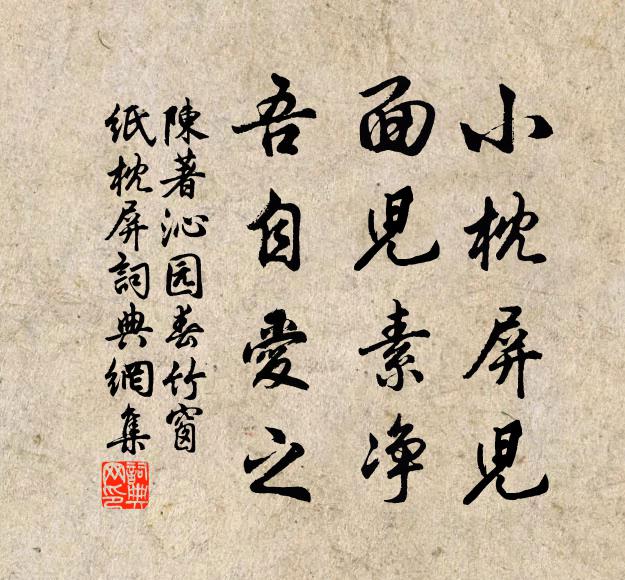 小枕屏児
面児素净
吾自愛之
陳著沁园春竹窗
紙枕屏詞典網集
詞典网印